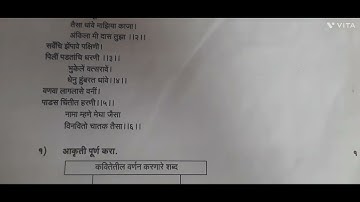 तैसा धांवे माझिया काजा।
अंकिला मी दास तुझा ।।२।।
सवेंचि झेंपावे पक्षिणी।
पिलीं पडतांचि धरणी ।।३।।
भुकेलें वत्सरावे।
धेनु हुंबरत धांवे।।४।।
वणवा लागलासे वनीं।
पाडस चिंतीत हरणी।।५।।
नामा म्हणे मेघा जैसा
विनवितो चातक तैसा।।६।।
१) आकृती पूर्ण करा.
१
कवितेतील वर्णन करणारे शब्द
VITA